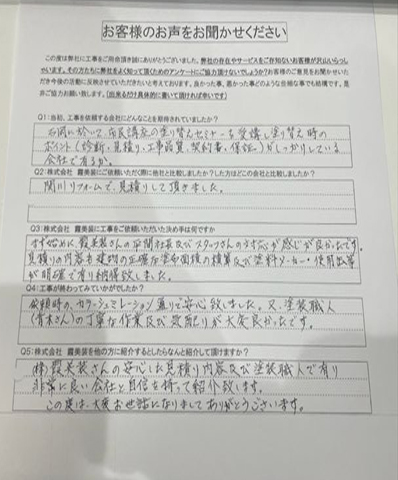 お客様のお声をお聞かせください
この度は弊社に工事をご用命頂き誠にありがとうございました。弊社の存在やサービスをご存知ないお客様が沢山いらっしゃ
います。その方たちに弊社をよく知って頂くためのアンケートにご協力頂けないでしょうか?お客様のご意見をお聞かせいた
だき今後の活動に反映させていただきたいと考えております。良かった事、悪かった事どのような些細な事でも結構です。是
非ご協力お願い致します。(出来るだけ具体的に書いて頂ければ幸いです)
Q1:当初、工事を依頼する会社にどんなことを期待されていましたか?
石岡に於いて、市民講座の塗り替えセミナーを受講し塗り替え時の
ポイント(診断、見積り、工事品質、契約書、保証)がしっかりしている
会社で有るか。
Q2:株式会社 霞美装にご依頼いただく際に他社と比較しましたか?した方はどこの会社と比較しましたか?
関川リフォームで、見積りして頂きました。
Q3:株式会社 霞美装に工事をご依頼いただいた決め手は何ですか
まず始めに、霞美装さんの平間社長及びスタッフさんの対応が感じが良かったです。
見積りの内容も建物の正確な塗布面積の積算及び塗料メーカー・使用缶等
が明確で有り納得致しました。
Q4:工事が終わってみていかがでしたか?
依頼時の、カラーシュミレーション通りで安心致しました。又、塗装職人
(青木さん)の丁寧な作業及び気配りが大変良かったです。
Q5:株式会社 霞美装を他の方に紹介するとしたらなんと紹介して頂けますか?
(株)霞美装さんの安心した見積り内容及び塗装職人で有り
非常に良い会社と自信を持って紹介致します。
この度は、大変お世話になりましてありがとうございます。